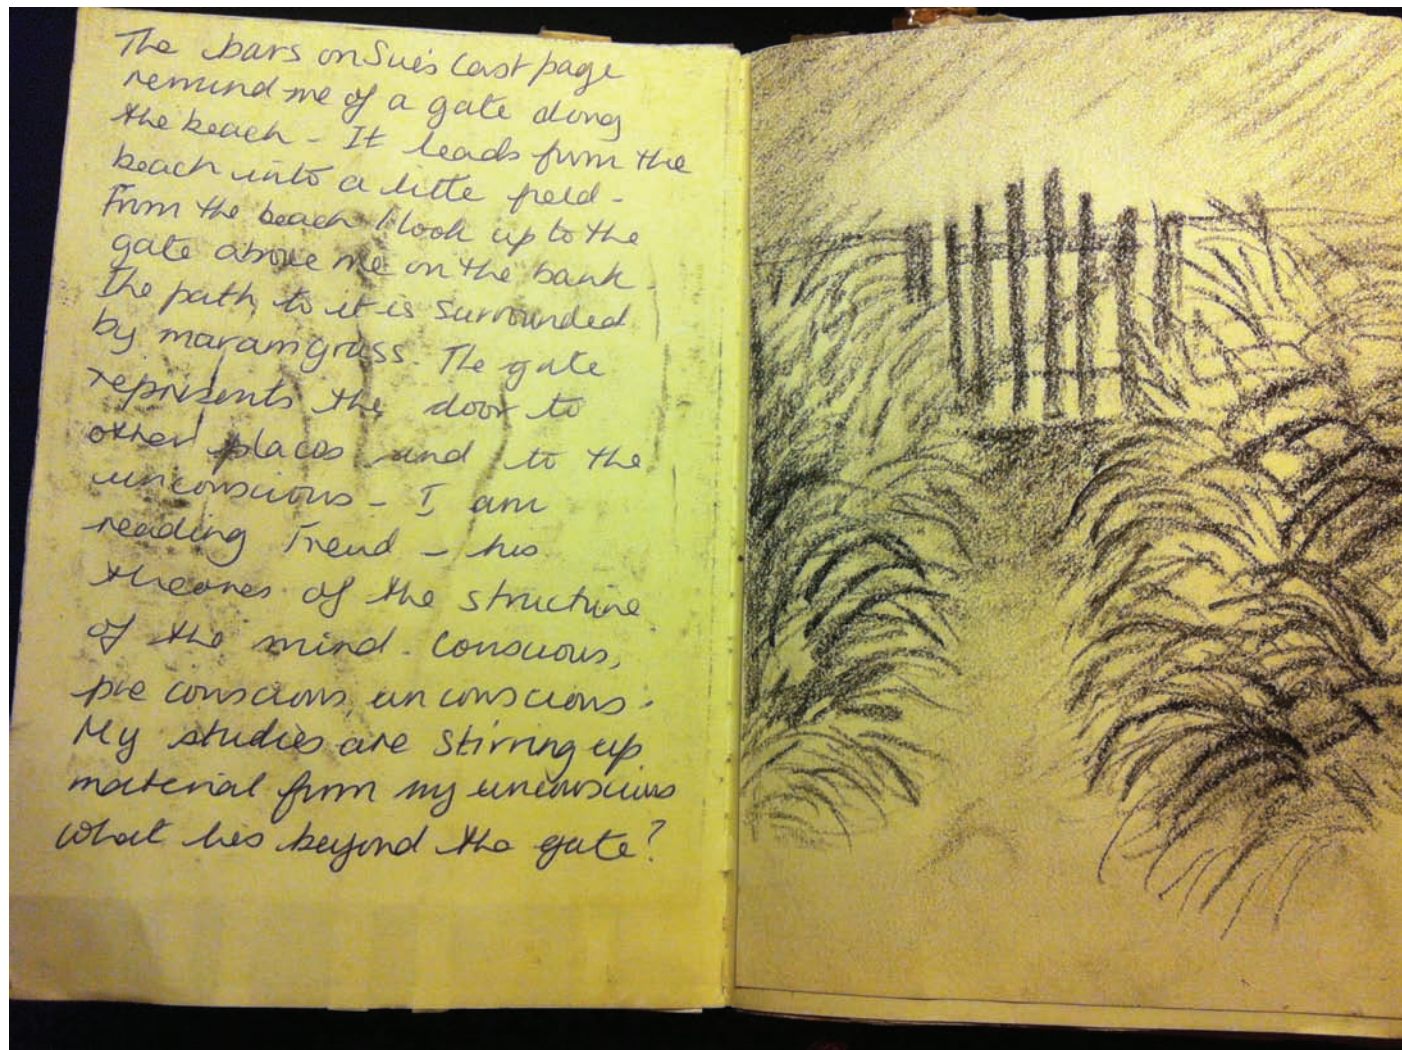 The bars on Sue's last page
remind me of a gate along
the beach - It leads from the
beach into a little field -
From the beach I look up to the
gate above me on the bank.
The path to it is surrounded
by maram grass. The gate
represents the door to
other places and to the
unconscious - I am
reading Freud - his
theories of the structure
of the mind - Conscious,
pre conscious, unconscious.
My studies are stirring up
material from my unconscious
what lies beyond the gate?